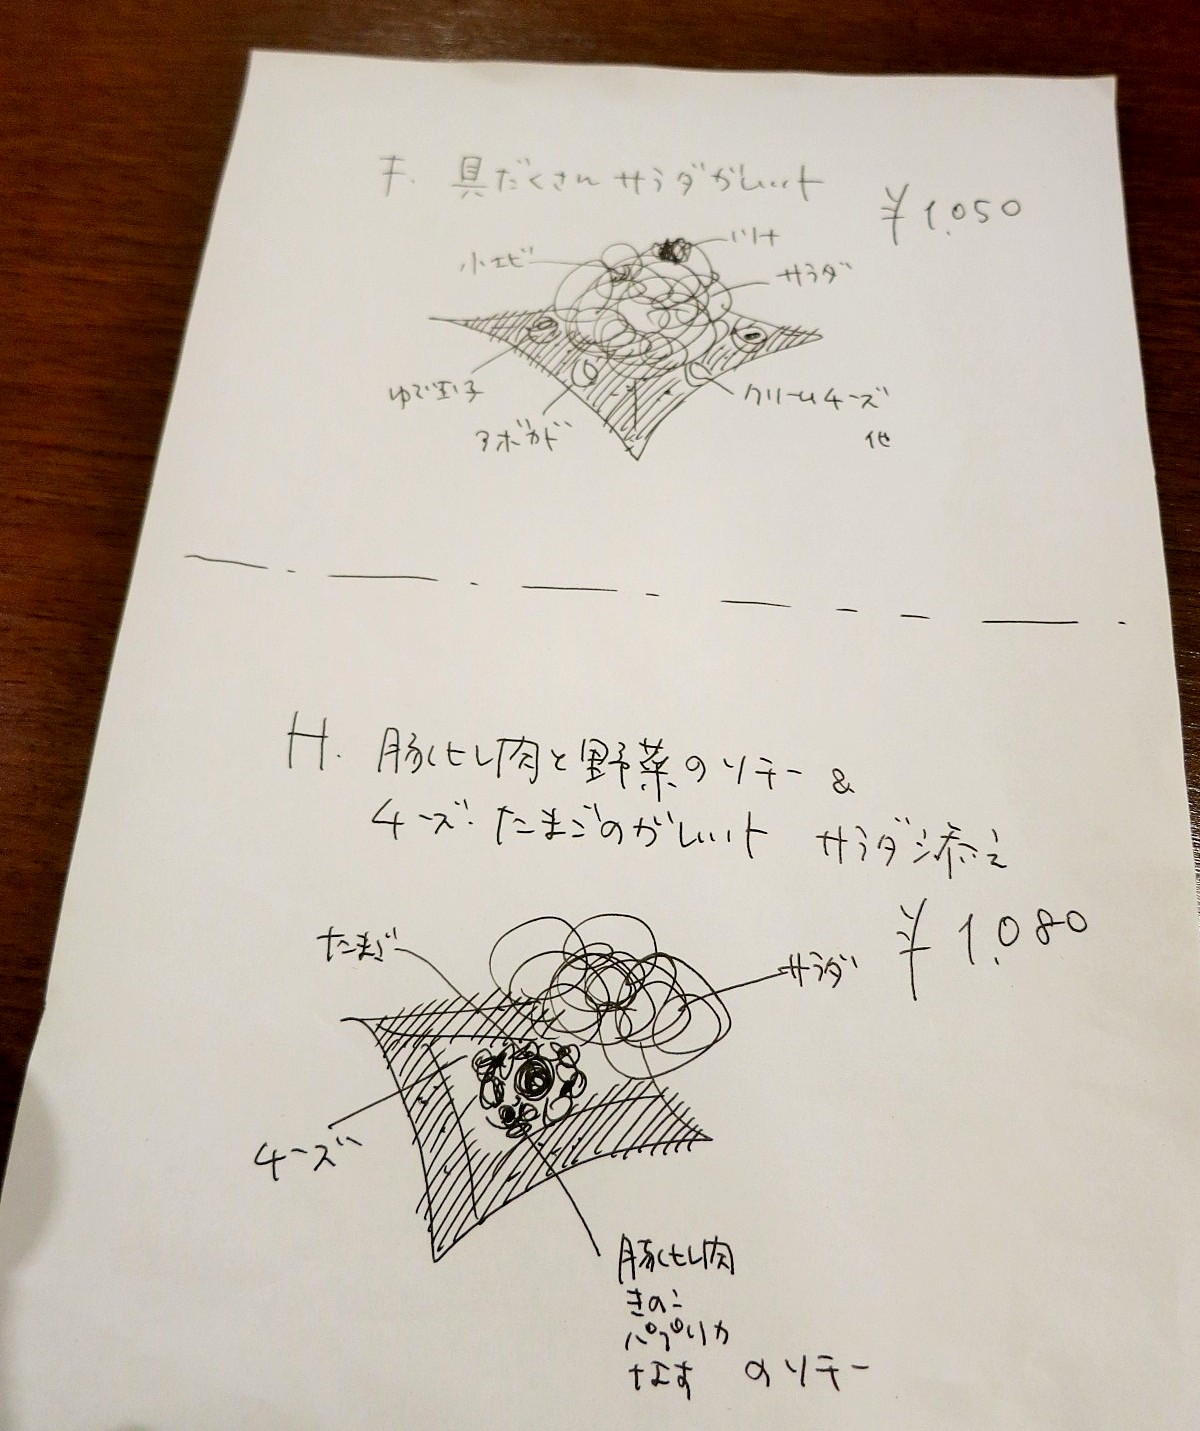 F. 具だくさんサラダがレット
¥1,050
小エビ
ツナ
サラダ
ゆで玉子
アボカド
クリームチーズ
他
H. 豚ヒレ肉と野菜のソテー &
チーズ・たまごのがレット サラダ添え
¥1,080
たまご
サラダ
チーズ
豚ヒレ肉
きのこ
パプリカ
なす のソテー